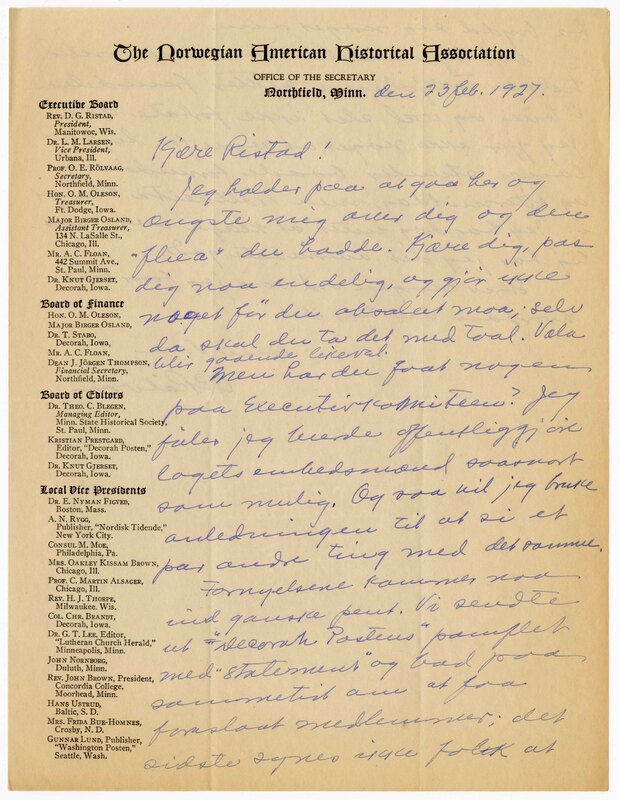 The Norwegian American Historical Association
OFFICE OF THE SECRETARY
Northfield, Minn. den 23 feb. 1927.
Executive Board
REV. D. G. RISTAD,
President,
Manitowoc, Wis.
DR. L. M. LARSEN,
Vice President,
Urbana, Ill.
PROF. O. E. RÖLVAAG,
Secretary,
Northfield, Minn.
HON. O. M. OLESON,
Treasurer,
Ft. Dodge, Iowa.
MAJOR BIRGER OSLAND,
Assistant Treasurer,
134 N. LaSalle St.,
Chicago, Ill.
MR. A. C. FLOAN,
442 Summit Ave.,
St. Paul, Minn.
DR. KNUT GJERSET,
Decorah, Iowa.
Board of Finance
HON. O. M. OLESON,
MAJOR BIRGER OSLAND,
DR. T. STABO,
Decorah, Iowa,
MR. A. C. FLOAN,
DEAN J. JÖRGEN THOMPSON,
Financial Secretary,
Northfield, Minn.
Board of Editors
DR. THEO. C. BLEGEN,
Managing Editor,
Minn. State Historical Society,
St. Paul, Minn.
KRISTIAN PRESTGARD,
Editor, "Decorah Posten,"
Decorah, Iowa.
DR. KNUT GJERSET,
Decorah, Iowa.
Local Vice Presidents
DR. E. NYMAN FIGVED,
Boston, Mass.
A. N. RYGG,
Publisher, "Nordisk Tidende,"
New York City.
CONSUL M. MOE,
Philadelphia, Pa.
MRS. OAKLEY KISSAM BROWN,
Chicago, Ill.
PROF. C. MARTIN ALSAGER,
Chicago, Ill.
REV. H. J. THORPE,
Milwaukee. Wis.
COL. CHR. BRANDT,
Decorah, Iowa.
DR. G. T. LEE, Editor,
"Lutheran Church Herald,"
Minneapolis, Minn.
JOHN NORNBORG,
Duluth, Minn.
REV. JOHN BROWN, President,
Concordia College,
Moorhead, Minn.
HANS USTRUD,
Baltic, S. D.
MRS. FRIDA BUE-HOMNES,
Crosby, N. D.
GUNNAR LUND, Publisher,
"Washington Posten,"
Seattle, Wash.
Kjære Ristad!
Jeg holder paa at gaa her og
ængste mig over dig og den
"flua" du hadde. Kjære dig, pas
dig naa endelig, og gjør ikke
noget før du absolut maa; selv
da skal du ta det med taal.
blir gaaende likevel.
Men har du faat nogen
paa Executivkomiteen? Jeg
føler jeg burde offentliggjøre
lagets embedsmænd saasnart
som mulig. Og saa vil jeg bruke
anledningen til at si et
par andre ting med det samme.
Fornyelsene kommer naa
ind ganske pent. Vi sendte
ut "Decorah Postens" pamflet
med "statement" og bad paa
sammetid om at faa
foreslaat medlemmer; det
sidste synes ikke folk at